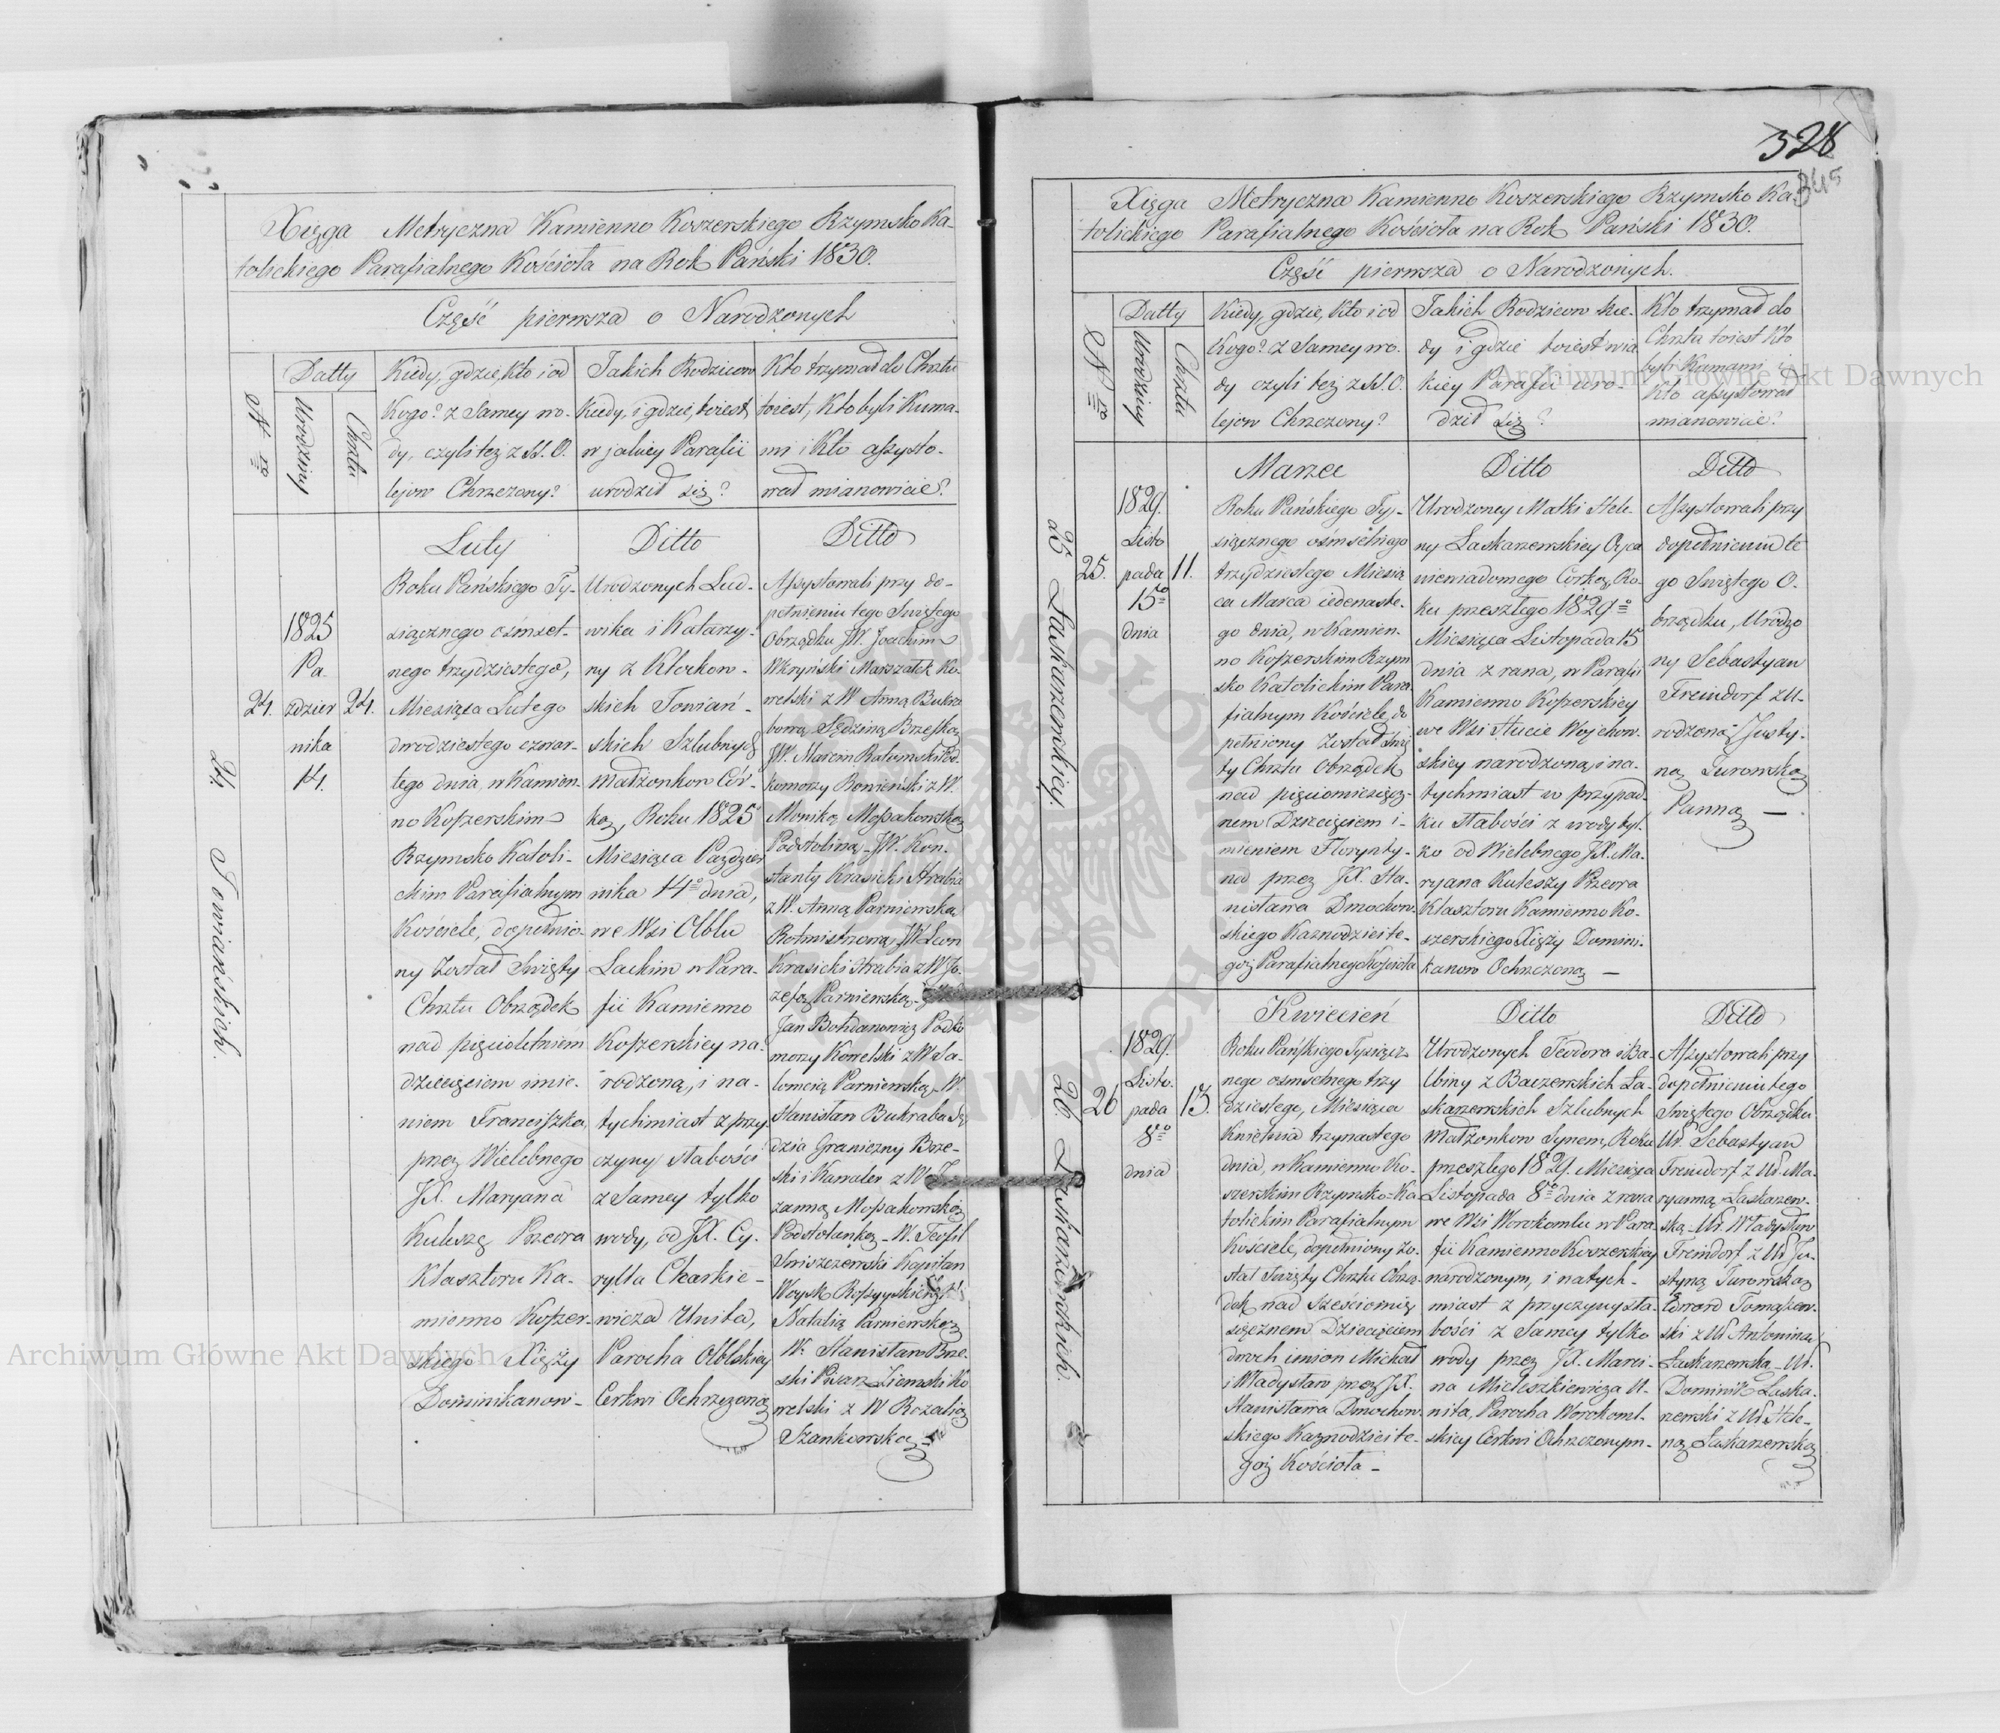 Xięga Metryczna Kamienno Koszerskiego Rzymsko Ka-
tolickiego Parafialnego Kościoła na Rok Pański 1830.
Część pierwsza o Narodzonych
Nro
Datty
Urodziny
Chrztu
Kiedy, gdzie, kto i od
Kogo? z Samey wo-
dy, czyli też z SS. O.
lejow Chrzczony?
Jakich Rodzicow
Kiedy, i gdzie, toiest
w jakiey Parafii
urodził się?
Kto trzymał do Chrztu
toiest, Kto byli Kuma-
mi i Kto assysto-
wał mianowicie?
24 Towiańskich.
24.
1825
Pa-
zdzier
nika
14.
24.
Luty
Roku Pańskiego Ty-
siącznego ośmset-
nego trzydziestego,
Miesiąca Lutego
dwudziestego czwar-
tego dnia, w Kamien-
no Koszerskim
Rzymsko Katoli-
ckim Parafialnym
Kościele, dopełnio-
ny został Swięty
Chrztu Obrządek
nad pięcioletniem
dziecięciem imie-
niem Franciszka,
przez Wielebnego
JX. Maryana
Kuleszę Przeora
Klasztoru Ka-
mienno Koszer-
skiego Xięży
Dominikanow -
Ditto
Urodzonych Lud-
wika i Katarzy-
ny z Kłockow-
skich Towiań-
skich Szlubnych
Małżonkow Cór-
ką, Roku 1825
Miesiąca Paździer
nika 14o dnia,
we Wsi Olblu
Lackim w Para-
fii Kamienno
Koszerskiey na-
rodzoną, i na-
tychmiast z przy
czyny słabości
z Samey tylko
wody, od JX. Cy-
rylla Charkie-
wicza Unita,
Parocha Olblskiey
Cerkwi Ochrzczoną
Ditto
Assystowali przy do-
pełnieniu tego Swiętego
Obrządku JW. Joachim
Marszałek Ko-
welski z W Anną Bukra
bową Sędziną Brzeską
JW. Marcin Pod-
komorzy z W.
Moniką Mossakowską
Podstoliną - JW. Kon-
stanty Krasicki Hrabia
z W. Anną Parniewską
Rotmistrzową, JW Leon
Krasicki Hrabia z W Jo-
zefą Parniewską -
Jan Bohdanowicz Podko
morzy Kowelski z W Sa-
lomeią Parniewską - W.
Stanisław Bukraba Sę
dzia Graniczny Brze-
ski i Kawaler z W
zanną Mossakowską
Podstolanką - W. Teofil
Sniszczewski Kapitan
Woysk Rossyyskich z W
Natalią Parniewską
W. Stanisław Brze-
ski Pisarz Ziemski Ko
welski z W Rozalią
Szankowską
328
345
Xięga Metryczna Kamienno Koszerskiego Rzymsko Ka-
tolickiego Parafialnego Kościoła na Rok Pański 1830.
Część pierwsza o Narodzonych.
Nro
Datty
Urodziny
Chrztu
Kiedy, gdzie, Kto i od
Kogo? z Samey wo-
dy czyli też z SS. O.
lejow Chrzczony?
Jakich Rodzicow Kie-
dy i gdzie toiest w ja
kiey Parafii uro-
dził się?
Kto trzymał do
Chrztu toiest Kto
byli Kumami i
Kto assystował
mianowicie?
25 Laskarzewskiey.
25.
1829.
Listo
pada
15o
dnia
11.
Marzec
Roku Pańskiego Ty-
siącznego ośmsetnego
trzydziestego Miesią
ca Marca iedenaste-
go dnia, w Kamien-
no Koszerskim Rzym
sko Katolickim Para-
fialnym Kościele, do
pełniony został Swię
ty Chrztu Obrządek
nad pięciomiesięcz-
nem Dziecięciem i-
mieniem Florynty-
na przez JX. Sta-
nisława Dmochow-
skiego Kaznodzieite-
goż Parafialnego Kościoła
Ditto
Urodzoney Matki Hele-
ny Laskarzewskiey Oyca
niewiadomego Córką, Ro-
ku przeszłego 1829o
Miesiąca Listopada 15
dnia z rana, w Parafii
Kamienno Koszerskiey
we Wsi Hucie Woyckow-
skiey narodzoną, i na-
tychmiast w przypad-
ku słabości z wody tyl-
ko od Wielebnego JX. Ma-
ryana Kuleszy Przeora
Klasztoru Kamienno Ko-
szerskiego Xięży Domini-
kanow Ochrzczoną —
Ditto
Assystowali przy
dopełnieniu te
go Swiętego O-
brządku, Urodzo
ny Sebastyan
Freindorf z U-
rodzoną Justy-
ną Turowską
Panną —
26 Laskarzewskich.
26
1829.
Listo-
pada
8o
dnia
13.
Kwiecień
Roku Pańskiego Tysiącz-
nego osmsetnego trzy
dziestego, Miesiąca
Kwietnia trzynastego
dnia, w Kamienno Ko-
szerskim Rzymsko-Ka
tolickim Parafialnym
Kościele, dopełniony zo-
stał Swięty Chrztu Obrzą-
dek nad Sześciomie
sięcznem Dziecięciem
dwoch imion Michał
i Władysław przez JX.
Stanisława Dmochow-
skiego Kaznodzieite-
goż Kościoła -
Ditto
Urodzonych Teodora i Ba-
lbiny z Baczewskich La-
skarzewskich Szlubnych
Małżonkow Synem, Roku
przeszłego 1829. Miesiąca
Listopada 8o dnia z rana
we Wsi Worokomlu w Para-
fii Kamienno Koszerskiey
narodzonym, i natych-
miast z przyczyny sła-
bości z Samey tylko
wody przez JX. Marci-
na Mieleszkiewicza U-
nita, Parocha Worokoml-
skiey Cerkwi Ochrzczonym -
Ditto
Assystowali przy
dopełnieniu tego
Swiętego Obrządku
Ur. Sebastyan
Freindorf z Ur. Ma-
ryanną Laskarzew-
ską - Ur. Władysław
Freindorf z Ur. Ju-
styną Turowską
Edward Tomaszew-
ski z Ur. Antoniną
Laskarzewską - Ur.
Dominik Laska-
rzewski z Ur. Hele-
ną Laskarzewską
Archiwum Główne Akt Dawnych
Archiwum Główne Akt Dawnych